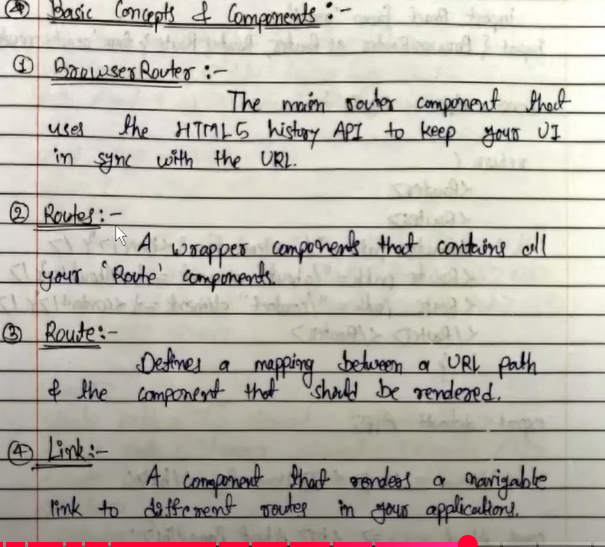 Basic Concepts & Components :-
① BrowserRouter :-
The main router component that
uses the HTML5 history API to keep your UI
in sync with the URL.
② Routes :-
A wrapper components that contains all
your 'Route' components.
③ Route :-
Defines a mapping between a URL path
& the component that should be rendered.
④ Link :-
A component that renders a navigable
link to different routes in your applications.